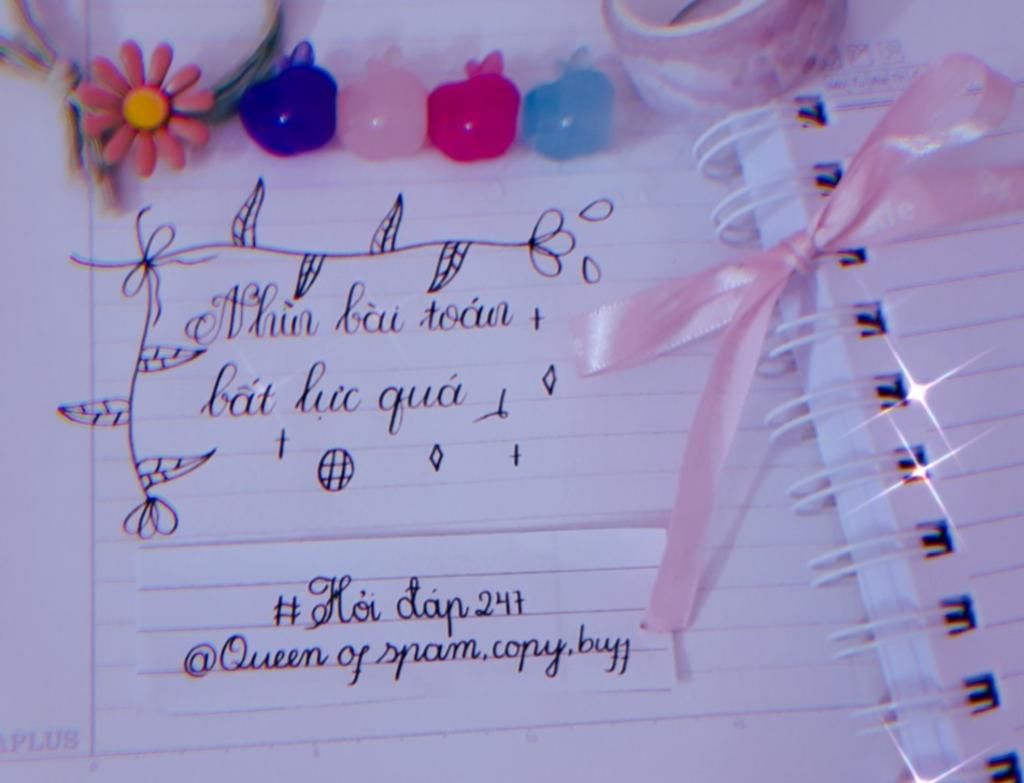 Nhìn bài toán
bất lực quá
#Hỏi đáp 247
@Queen of spam,copy,buff
APLUS